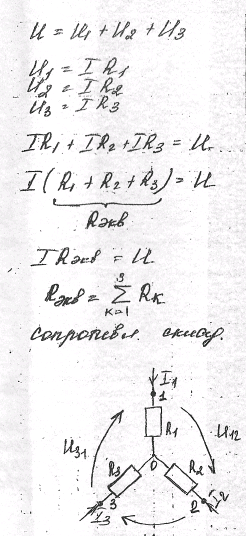 U = U₁ + U₂ + U₃
U₁ = I R₁
U₂ = I R₂
U₃ = I R₃
IR₁ + IR₂ + IR₃ = U
I(R₁ + R₂ + R₃) = U
Rэкв
I Rэкв = U
Rэкв = ∑ Rₖ
3
к=1
сопротивл. склад.
I₁
1
R₁
U₃₁
U₁₂
0
R₃
R₂
3
2
I₃
I₂